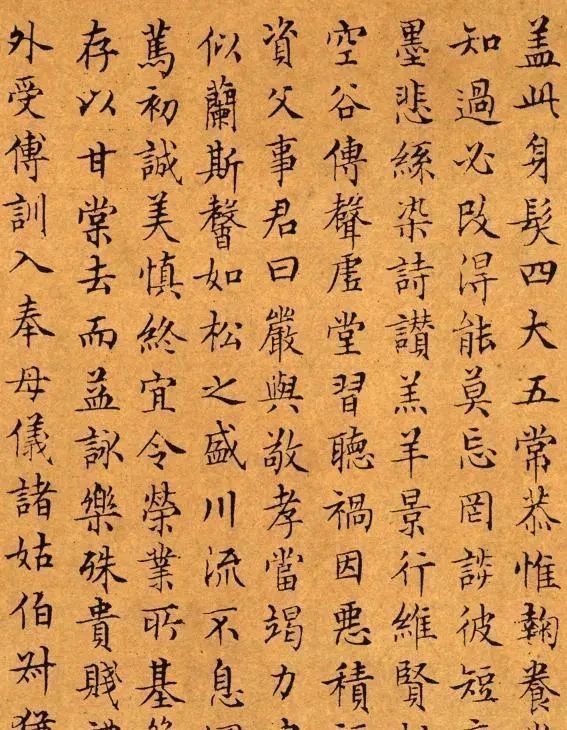 盖此身髮四大五常恭惟鞠養
知過必改得能莫忘罔談彼短
墨悲絲染詩讃羔羊景行維賢
空谷傳聲虛堂習聽禍因惡積
資父事君曰嚴與敬孝當竭力
似蘭斯馨如松之盛川流不息
篤初誠美慎終宜令榮業所基
存以甘棠去而益詠樂殊貴賤
外受傅訓入奉母儀諸姑伯叔猶